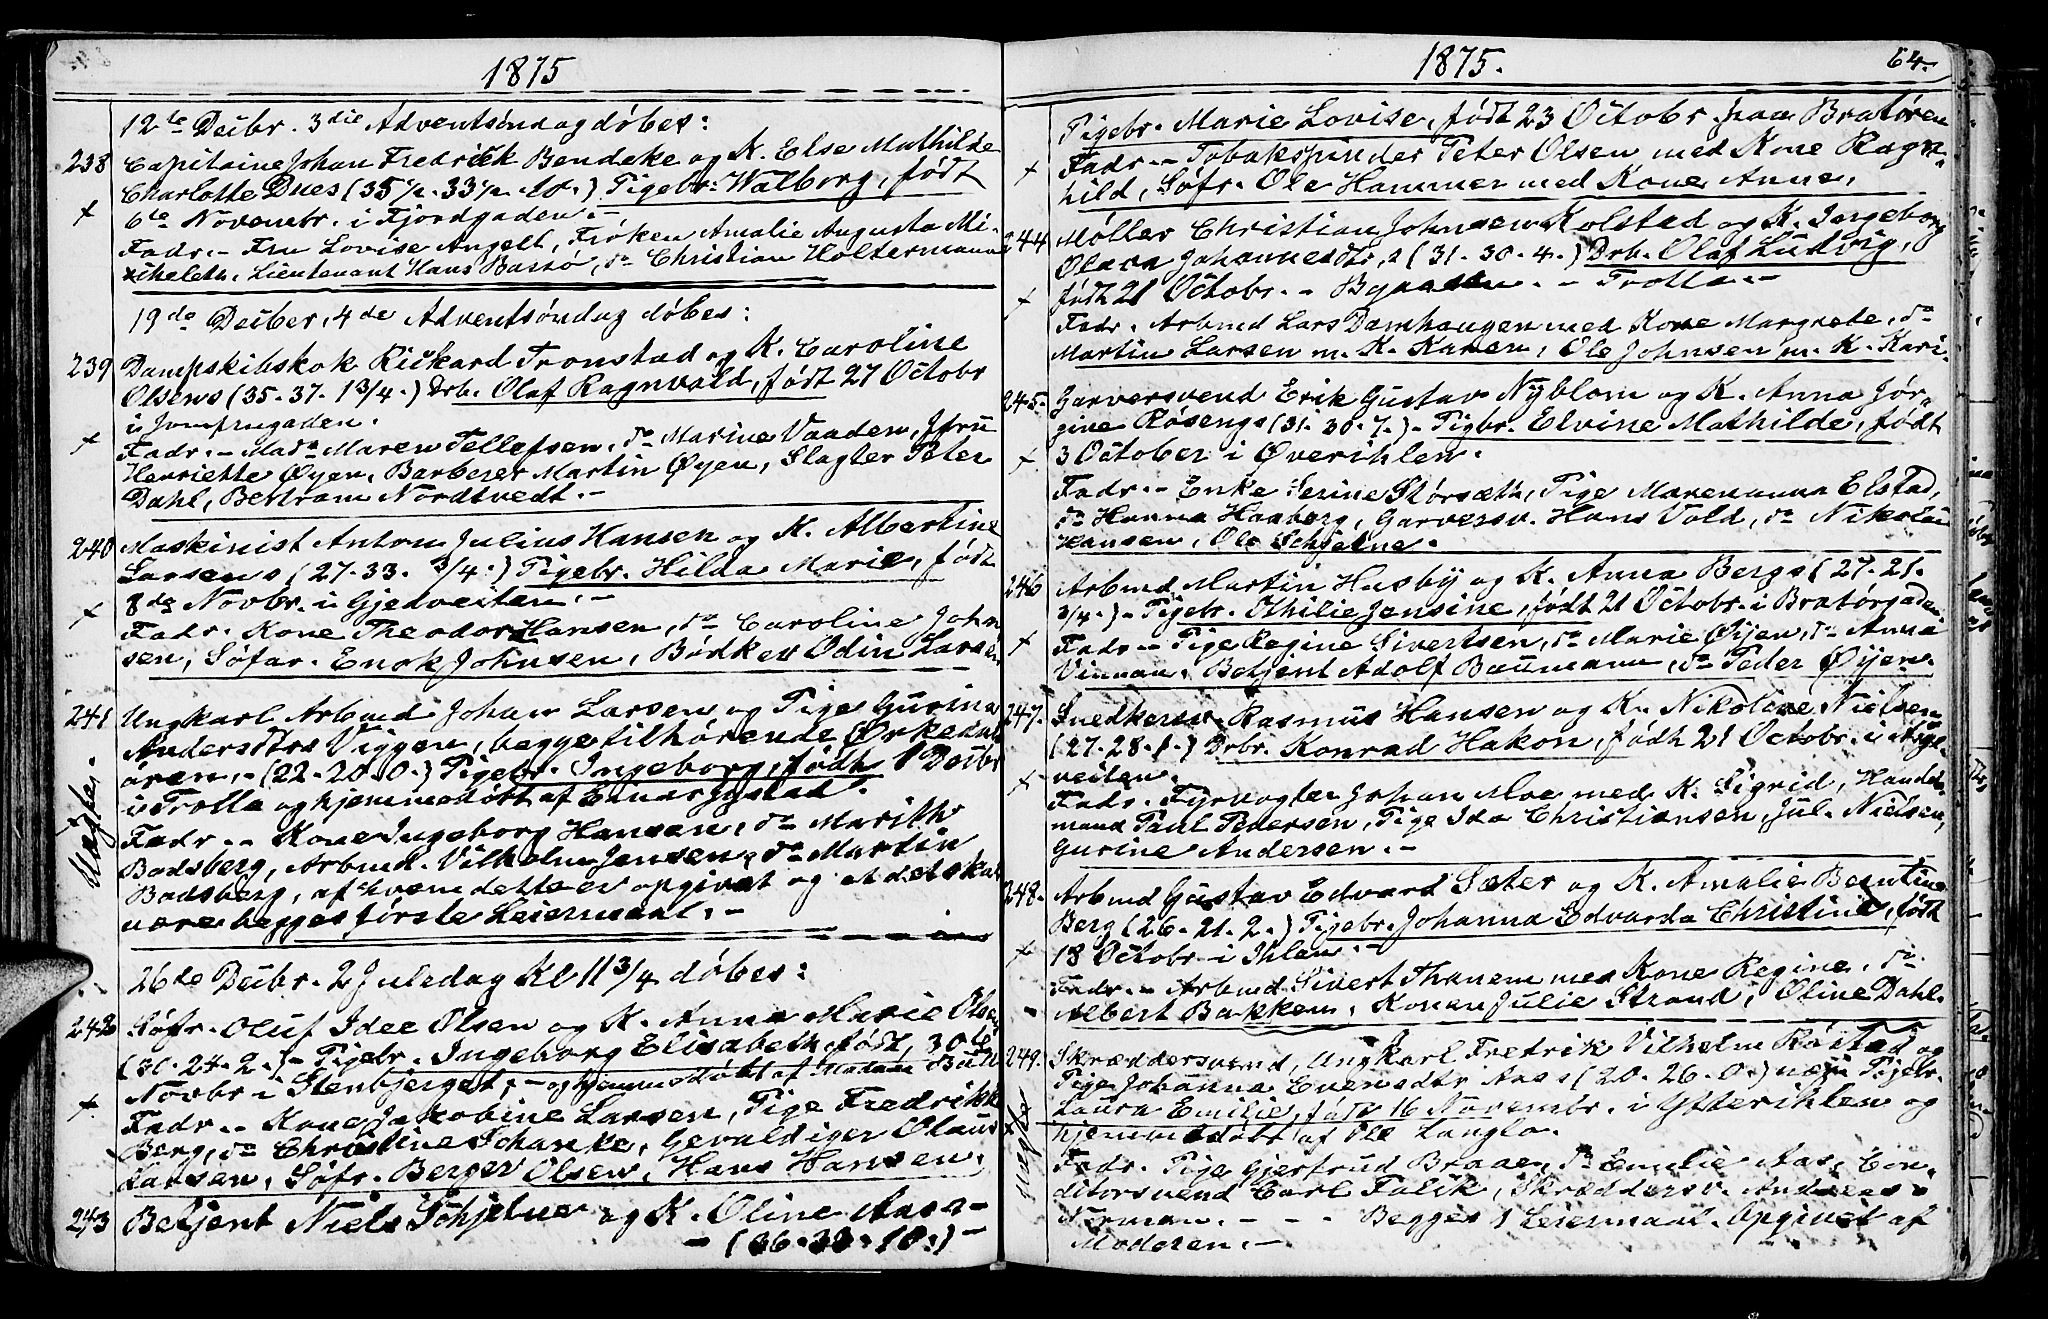 1875
12te Decbr. 3die Adventsöndag döbes:
238 Capitaine Johan Fredrick Bendeke og K. Else Mathilde
Charlotte Dues (35½. 33½. 10.) Pigebr: Walborg, født
+ 6te Novembr. i Fjordgaden.-
Fadr.- Fru Lovise Angell, Frøken Amalie Augusta Mi-
chelets, Lieutenant Hans Bassö, do Christian Holtermann
19de Decber, 4de Adventsöndag döbes:
239 Dampskibskok Rickard Tronstad og K. Caroline
Olsens (35. 37. 1¾.) Drb. Olaf Ragnvald, født 27 Octobr
i Jomfrugaden.
+ Fadr.- Mad. Maren Tellefsen, do Marine Vaaden, Jfru
Henriette Øyen, Barberer Martin Øyen, Slagter Peter
Dahl, Bertram Nordtvedt.-
240 Maskinist Anton Julius Hansen og K. Albertine
Larsens (27. 33. ¾.) Pigebr. Hilda Marie, født
8de Novbr. i Gjedveiten.-
+ Fadr. Kone Theodor Hansen, do Caroline John
sen, Søfar. Enok Johnsen, Bødker Odin Larsen
241 Ungkarl Arbmd Johan Larsen og Pige Gurina
Andersdtrs Viggen, begge tilhørende Ørkedals
øren,- (22. 20. 0.) Pigebr. Ingeborg, født 1 Decbr
i Trolla og hjemmedöbt af
Uægte.
Fadr.- Kone Ingeborg Hansen, do Marith
Bodsberg, Arbmd. Vilhelm Jensen, do Martin
Bodsberg, af hvem dette er opgivet og at det skal
være begges første Leiermaal.-
26de Decbr. 2 Juledag Kl 11¾ döbes:
242 Søfr. Oluf Idee Olsen og K. Anna Marie Olsen
(30. 24. 2.)- Pigebr. Ingeborg Elisabeth, født 30te
Novbr i Stenbjerget,- og hjemmedöbt af Madam
+ Fadr.- Kone Jakobine Larsen, Pige Fredrikke
Berg, do Christine Schanke, Gevaldiger Olaus
Hansen, Søfr. Berger Olsen, Hans Hansen,
243 Betjent Niels Schjelne og K. Oline Aas
- (36. 32. 10.)-
1875. 64.
Pigebr. Marie Lovise, født 23 Octobr. paa Bratören
+ Fadr.- Tobakspinder Peter Olsen med Kone Ragn-
hild, Søfr. Ole Hammer med Kone Anne,
244 Møller Christian Johnsen Kolstad og K. Ingeborg
Olava Johannesdtr,s (31. 30. 4.) Drb. Olaf Ludvig,
+ født 21 Octobr.- Byaasen.- Trolla.-
Fadr. Arbmd Lars Damhaugen med Kone Margrete, do
Martin Larsen m. K. Karen, Ole Johnsen m. K. Kari-
245. Garversvend Erik Gustav Nyblom og K. Anna Jör-
gine Rösengs (31. 30. 7.)- Pigbr. Elvine Mathilde, født
+ 3 October i Øverihlen.
Fadr.- Enke Serine Störsæth, Pige Maren Anna Elstad,
do Hanna Haaberg, Garversv. Hans Vold, do Nikolai
Hansen, Ole Schjelne.
246 Arbmd. Martin Husby og K. Anna Bergs (27. 21.
¾.)- Pigebr. Othilie Jensine, født 21 Octobr. i Bratörgaden
+ Fadr- Pige Regine Sivertsen, do Marie Øyen, do Anna
Vinnan, Betjent Adolf Baumann, do Peder Øyen.
247. Snedkersv. Rasmus Hansen og K. Nikoline Nielsen
(27. 28. 1.) Drbr. Konrad Hakon, født 21 Octobr. i
veiten.
+ Fadr. Fyrvogter Johan Moe med K. Sigrid, Handels-
mand Paul Pedersen, Pige Ida Christiansen, Jul. Nielsen,
Gurine Andersen.-
248. Arbmd Gustav Edvard Sæter og K. Amalie Berntine
Berg (26. 21. 2.) Pigebr. Johanna Edvarda Christine, født
+ 18 Octobr i Ihlen.-
Fadr.- Arbmd. Sivert Thanem med Kone Regine, do
Albert Bakken, Konen Julie Strand, Oline Dahl.
249. Skræddersvend, Ungkarl Fredrik Vilhelm Röstad og
Pige Johanna Evensdtr Aas (20. 26. 0.) Pigebr.
Laura Emilie, født 16 Novembr. i Ytterihlen og
+ hjemmedöbt af Ole Langlo.
uægte
Fadr. Pige Gjertrud Braaen, do Emilie Aas, Con-
ditorsvend Carl Falck, Skræddersv. Andreas
Norman.- - - Begges 1 Leiermaal. Opgivet af
Moderen.-